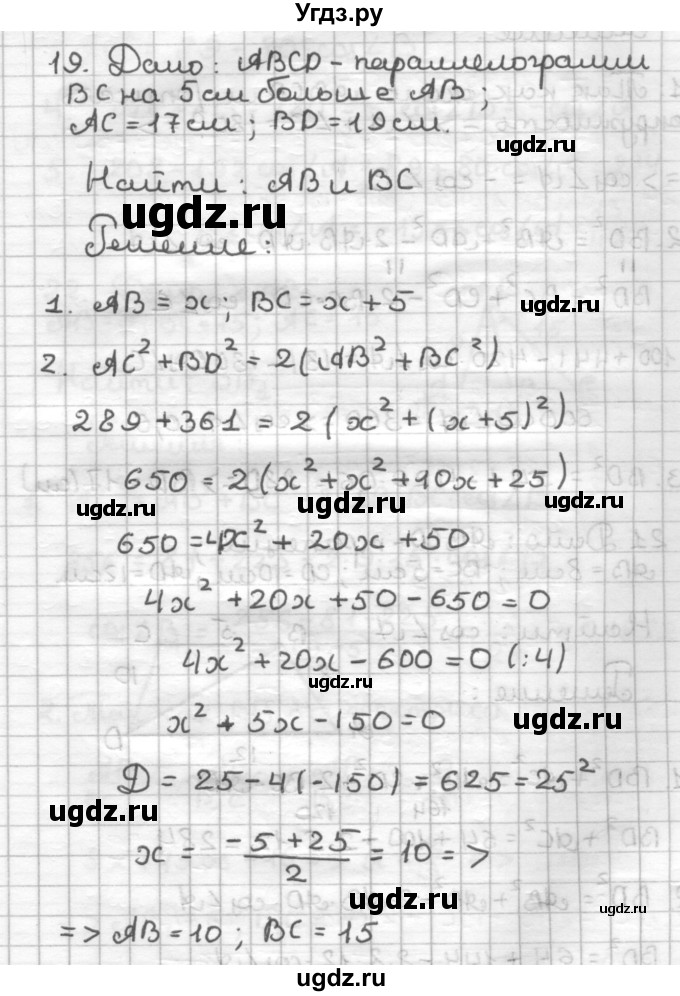 Угдз.ру
19. Дано: ABCD - параллелограмм
BC на 5 см больше AB;
AC = 17 см; BD = 19 см.
ugdz.ru
Найти: AB и BC
ugdz.ru
Решение:
1. AB = x; BC = x + 5
ugdz.ru
2. AC² + BD² = 2(AB² + BC²)
289 + 361 = 2(x² + (x + 5)²)
650 = 2(x² + x² + 10x + 25)
ugdz.ru ugdz.ru ugdz.ru
650 = 4x² + 20x + 50
4x² + 20x + 50 - 650 = 0
4x² + 20x - 600 = 0 (:4)
ugdz.ru
x² + 5x - 150 = 0
ugdz.ru
Д = 25 - 4(-150) = 625 = 25²
ugdz.ru
x = -5 + 25 / 2 = 10 = >
ugdz.ru
ugdz.ru
= > AB = 10; BC = 15
ugdz.ru